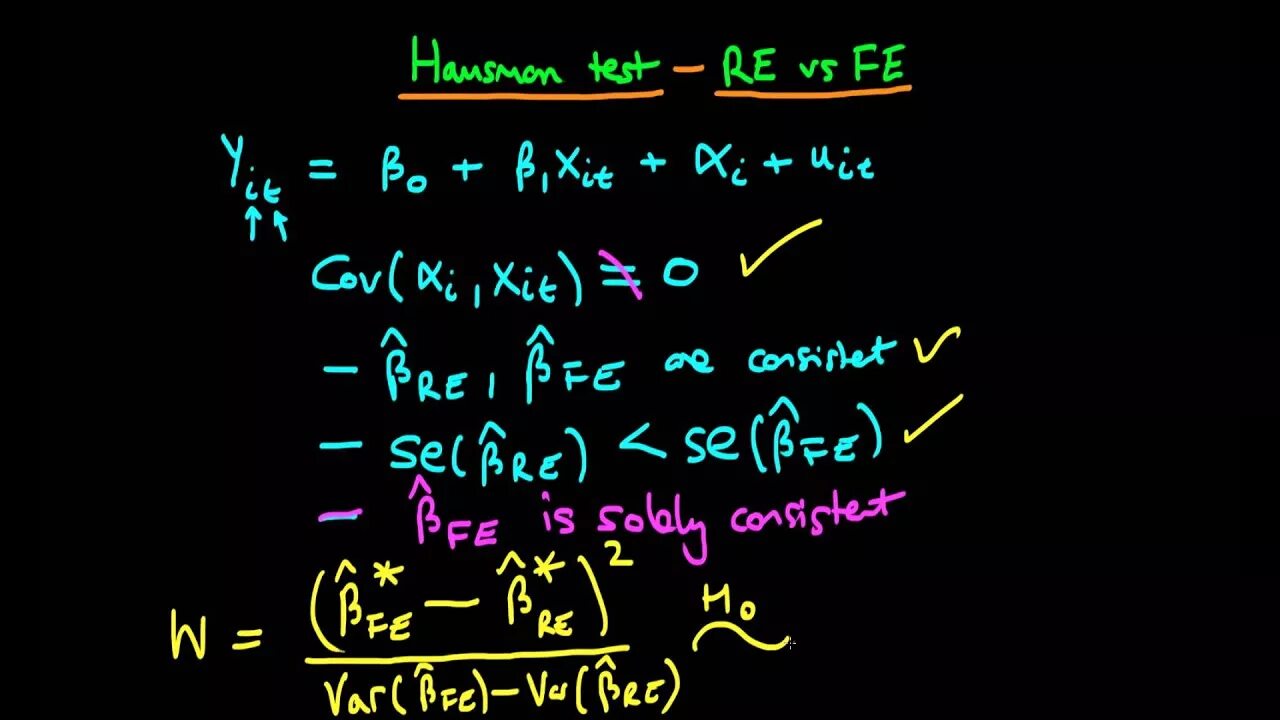 Hausman test - RE vs FE
Yit = β0 + β1Xit + αi + uit
↑↑
Cov(αi, Xit) ≠ 0 ✓
- β̂RE, β̂FE are consistent ✓
- se(β̂RE) < se(β̂FE) ✓
- β̂FE is solely consistent
W = (β̂*FE - β̂*RE)² / Var(β̂FE) - Var(β̂RE) ~ H0